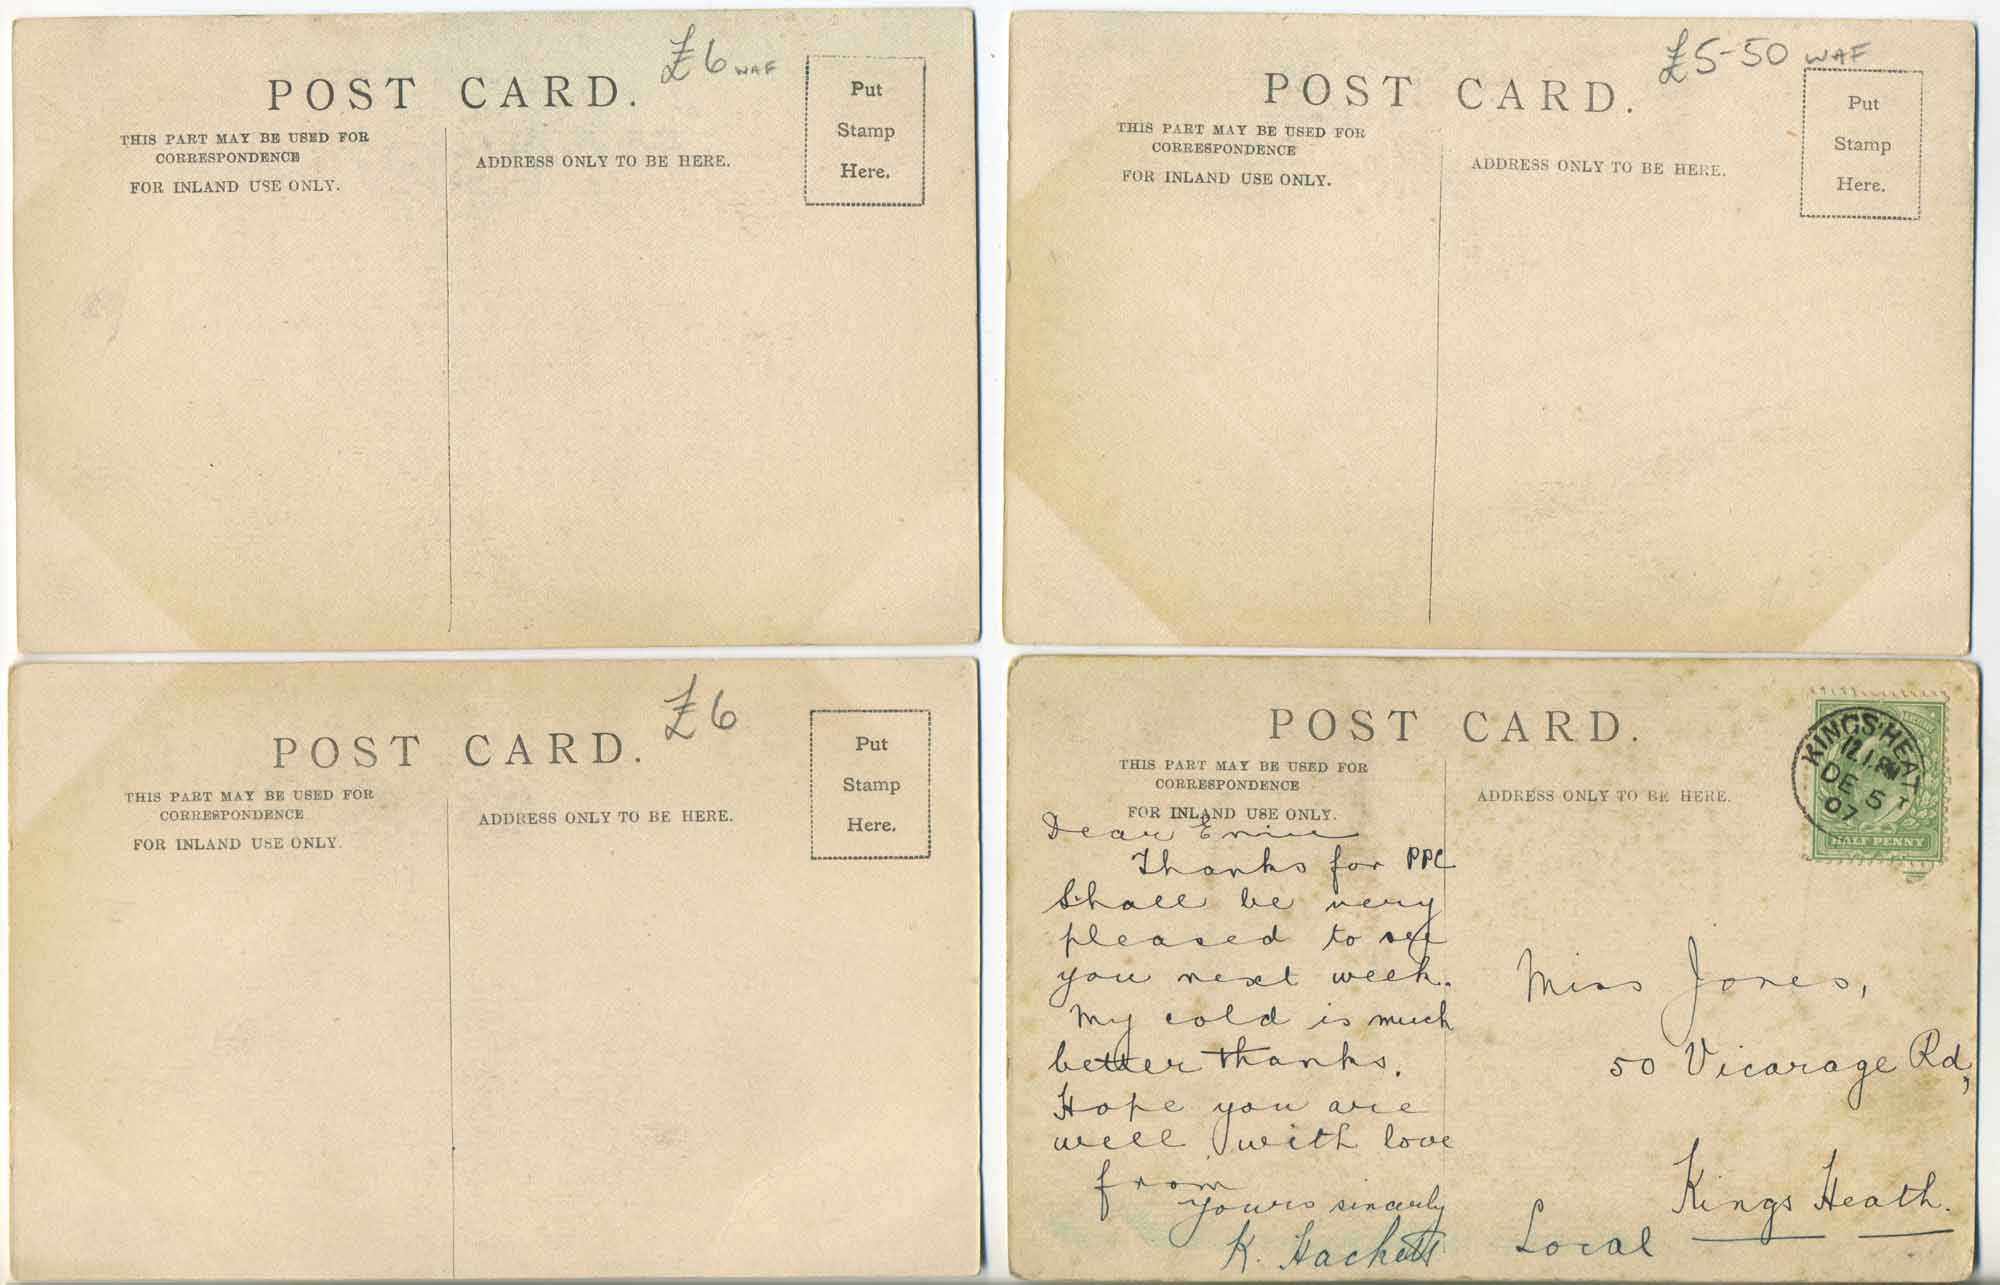 POST CARD.
£6 WAF
THIS PART MAY BE USED FOR
CORRESPONDENCE
FOR INLAND USE ONLY.
ADDRESS ONLY TO BE HERE.
Put
Stamp
Here.
POST CARD.
£5-50 WAF
THIS PART MAY BE USED FOR
CORRESPONDENCE
FOR INLAND USE ONLY.
ADDRESS ONLY TO BE HERE.
Put
Stamp
Here.
POST CARD.
£6
THIS PART MAY BE USED FOR
CORRESPONDENCE
FOR INLAND USE ONLY.
ADDRESS ONLY TO BE HERE.
Put
Stamp
Here.
POST CARD.
THIS PART MAY BE USED FOR
CORRESPONDENCE
FOR INLAND USE ONLY.
Dear
Thanks for PPC
Shall be very
pleased to see
you next week.
My cold is much
better thanks.
Hope you are
well with love
from
yours sincerly
K. Hackett
ADDRESS ONLY TO BE HERE.
KINGS HEATH
12.1.PM
DE 5
07
HALF PENNY
Miss Jones,
50 Vicarage Rd,
Kings Heath.
Local